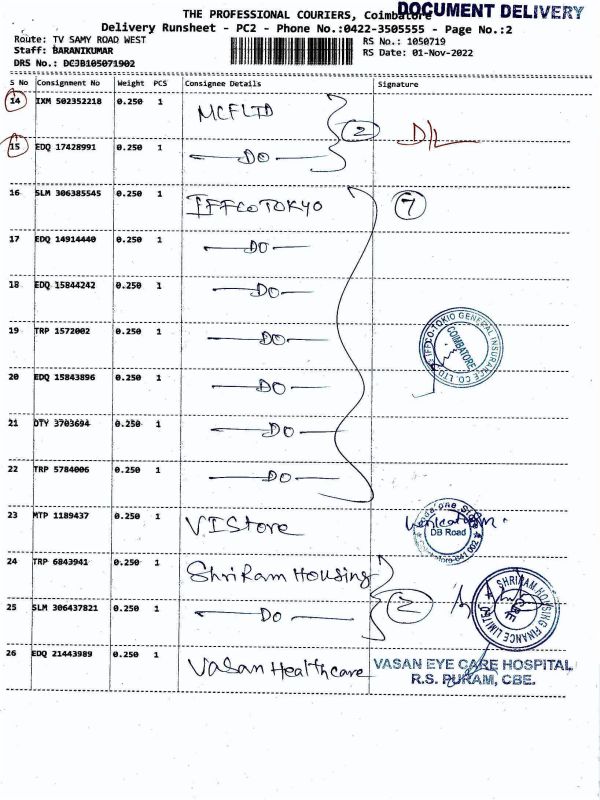 THE PROFESSIONAL COURIERS, Coimbatore
DOCUMENT DELIVERY
Delivery Runsheet - PC2 - Phone No.:0422-3505555 - Page No.:2
Route: TV SAMY ROAD WEST
RS No.: 1050719
Staff: BARANIKUMAR
RS Date: 01-Nov-2022
DRS No.: DCJB105071902
S No Consignment No Weight PCS Consignee Details Signature
14 IXM 502352218 0.250 1 MCFLTD
2
D/L
15 EDQ 17428991 0.250 1 DO
16 SLM 306385545 0.250 1 IFFCO TOKYO
7
17 EDQ 14914440 0.250 1 DO
18 EDQ 15844242 0.250 1 DO
19 TRP 1572002 0.250 1 DO
IFFCO-TOKIO GENERAL INSURANCE CO. LTD
COIMBATORE
20 EDQ 15843896 0.250 1 DO
21 DTY 3703694 0.250 1 DO
22 TRP 5784006 0.250 1 DO
23 MTP 1189437 0.250 1 VI Store
DB Road
24 TRP 6843941 0.250 1 Shri Ram Housing
2
SHRIRAM HOUSING FINANCE LIMITED
25 SLM 306437821 0.250 1 DO
26 EDQ 21443989 0.250 1 Vasan Healthcare
VASAN EYE CARE HOSPITAL
R.S. PURAM, CBE.